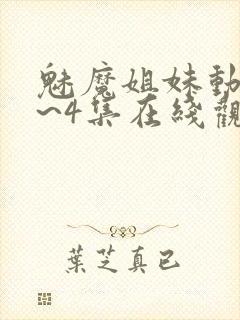 魅魔姐妹動
~4集在綫觀
葉芝真已